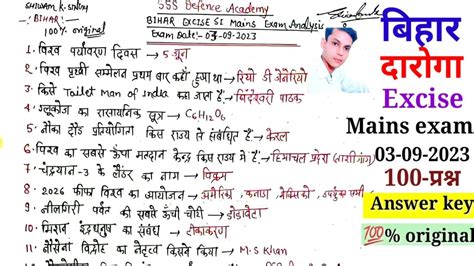 SHIVAM K. SINGH
BIHAR
100% original
SSS Defence Academy
BIHAR EXCISE SI Mains Exam Analysis
Exam Date:- 03-09-2023
1. विश्व पर्यावरण दिवस → 5 जून
2. विश्व पृथ्वी सम्मेलन प्रथम बार कहाँ हुआ था → रियो डी जेनेरियो
3. किसे Toilet Man of India कहा जाता है → बिंदेश्वरी पाठक
4. ग्लूकोज का रासायनिक सूत्र → C₆H₁₂O₆
5. नौका दौड़ प्रतियोगिता किस राज्य से संबंधित है → केरल
6. विश्व का सबसे ऊँचा मतदान केन्द्र किस राज्य में है → हिमाचल प्रदेश
7. चंद्रयान-3 के लैंडर का नाम → विक्रम
8. 2026 फीफा विश्व का आयोजन → अमेरिका, कनाडा, मैक्सिको
9. नीलगिरी पर्वत की सबसे ऊँची चोटी → डोडाबेटा
10. मिशन इंद्रधनुष का संबंध → टीकाकरण
11. नौसेना विद्रोह का नेतृत्व किसने किया → M.S Khan
बिहार
दारोगा
Excise
Mains exam
03-09-2023
100-प्रश्न
Answer key
💯% original